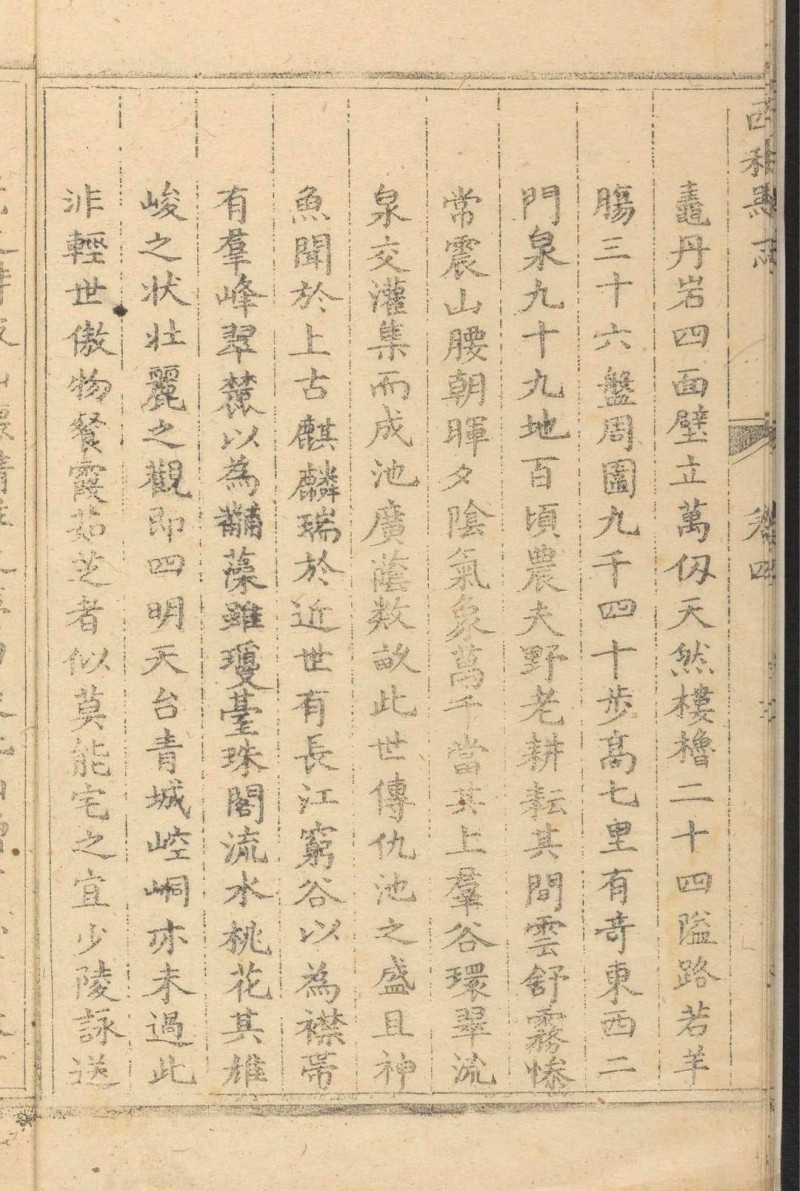 西和縣志
卷四
鼇丹岩四面壁立萬仭天然樓櫓二十四隘路若羊
膓三十六盤周圍九千四十步高七里有奇東西二
門泉九十九地百頃農夫野老耕耘其間雲舒霧慘
常震山腰朝暉夕陰氣象萬千當其上羣谷環翠流
泉交灌集而成池廣蔭数畝此世傳仇池之盛且神
魚聞於上古麒麟瑞於近世有長江窮谷以為襟帶
有羣峰翠麓以為黼藻雖瓊臺珠閣流水桃花其雄
峻之状壯麗之觀即四明天台青城崆峒亦未過此
非輕世傲物餐霞茹芝者似莫能宅之宜少陵詠送